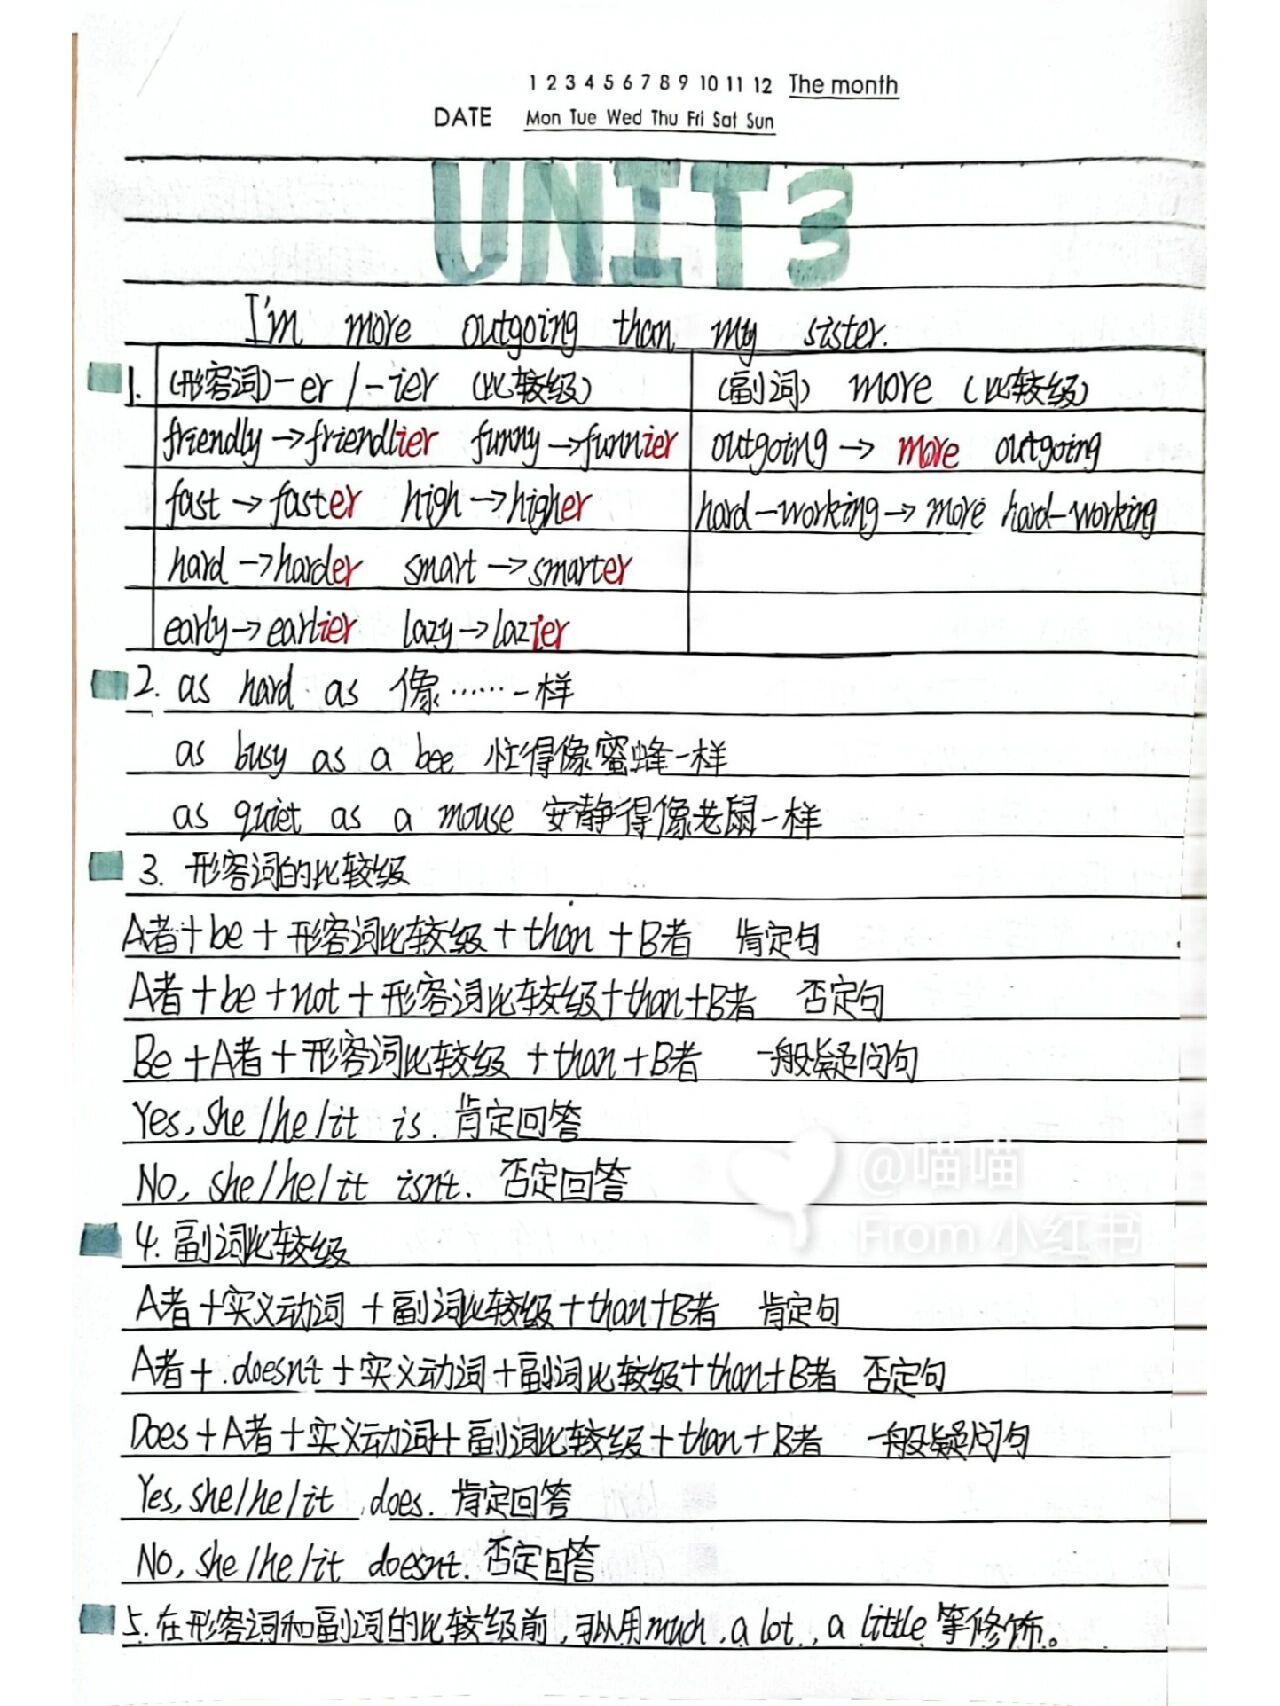 1 2 3 4 5 6 7 8 9 10 11 12 The month
DATE Mon Tue Wed Thu Fri Sat Sun
UNIT3
I'm more outgoing than my sister.
1. (形容词)-er/-ier (比较级) (副词) more (比较级)
friendly→friendlier funny→funnier outgoing→more outgoing
fast→faster high→higher hard-working→more hard-working
hard→harder smart→smarter
early→earlier lazy→lazier
2. as hard as 像……一样
as busy as a bee 忙得像蜜蜂一样
as quiet as a mouse 安静得像老鼠一样
3. 形容词的比较级
A者+be+形容词比较级+than+B者 肯定句
A者+be+not+形容词比较级+than+B者 否定句
Be+A者+形容词比较级+than+B者 一般疑问句
Yes, she/he/it is. 肯定回答
No, she/he/it isn't. 否定回答
@喵喵
From 小红书
4. 副词比较级
A者+实义动词+副词比较级+than+B者 肯定句
A者+doesn't+实义动词+副词比较级+than+B者 否定句
Does+A者+实义动词+副词比较级+than+B者 一般疑问句
Yes, she/he/it does. 肯定回答
No, she/he/it doesn't. 否定回答
5. 在形容词和副词的比较级前,可以用much, a lot, a little等修饰。